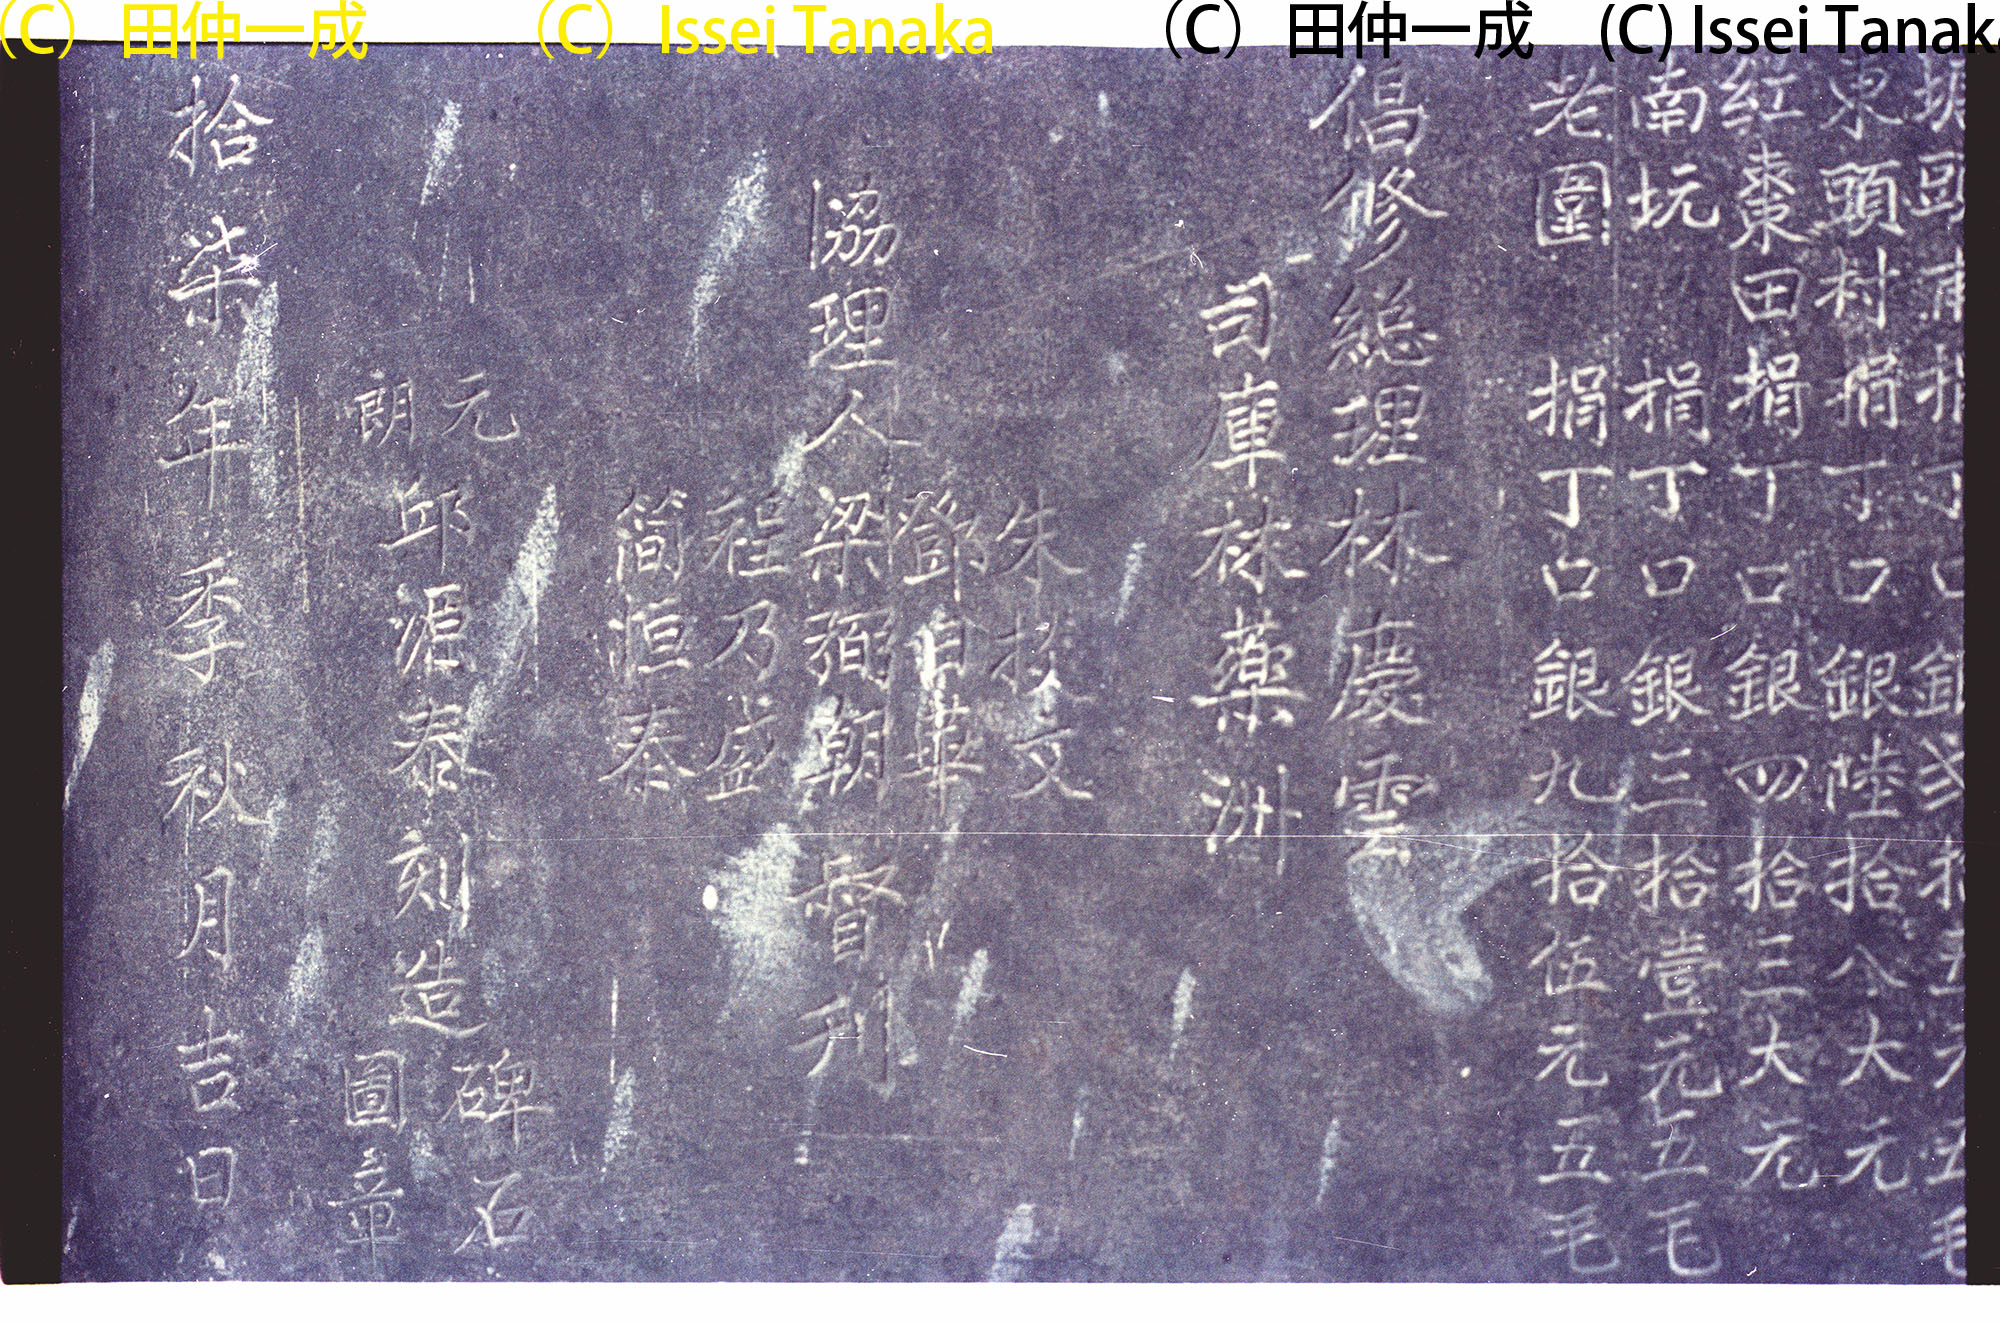 (C) 田仲一成 (C) Issei Tanaka (C) 田仲一成 (C) Issei Tanaka
東頭村 捐丁口銀陸拾 大元
紅棗田捐丁口銀四拾三大元
南坑 捐丁口銀三拾壹元五毛
老圍 捐丁口銀九拾伍元五毛
倡修總理林慶雲
司庫林藥洲
朱 文
鄧 華
協理人梁弼朝督刋
程乃盛
簡恒泰
元朗邱源泰刻造碑石圖章
拾柒年季秋月吉日